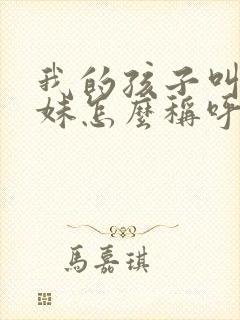 我的孩子叫
妹怎麼稱呼
馬嘉琪